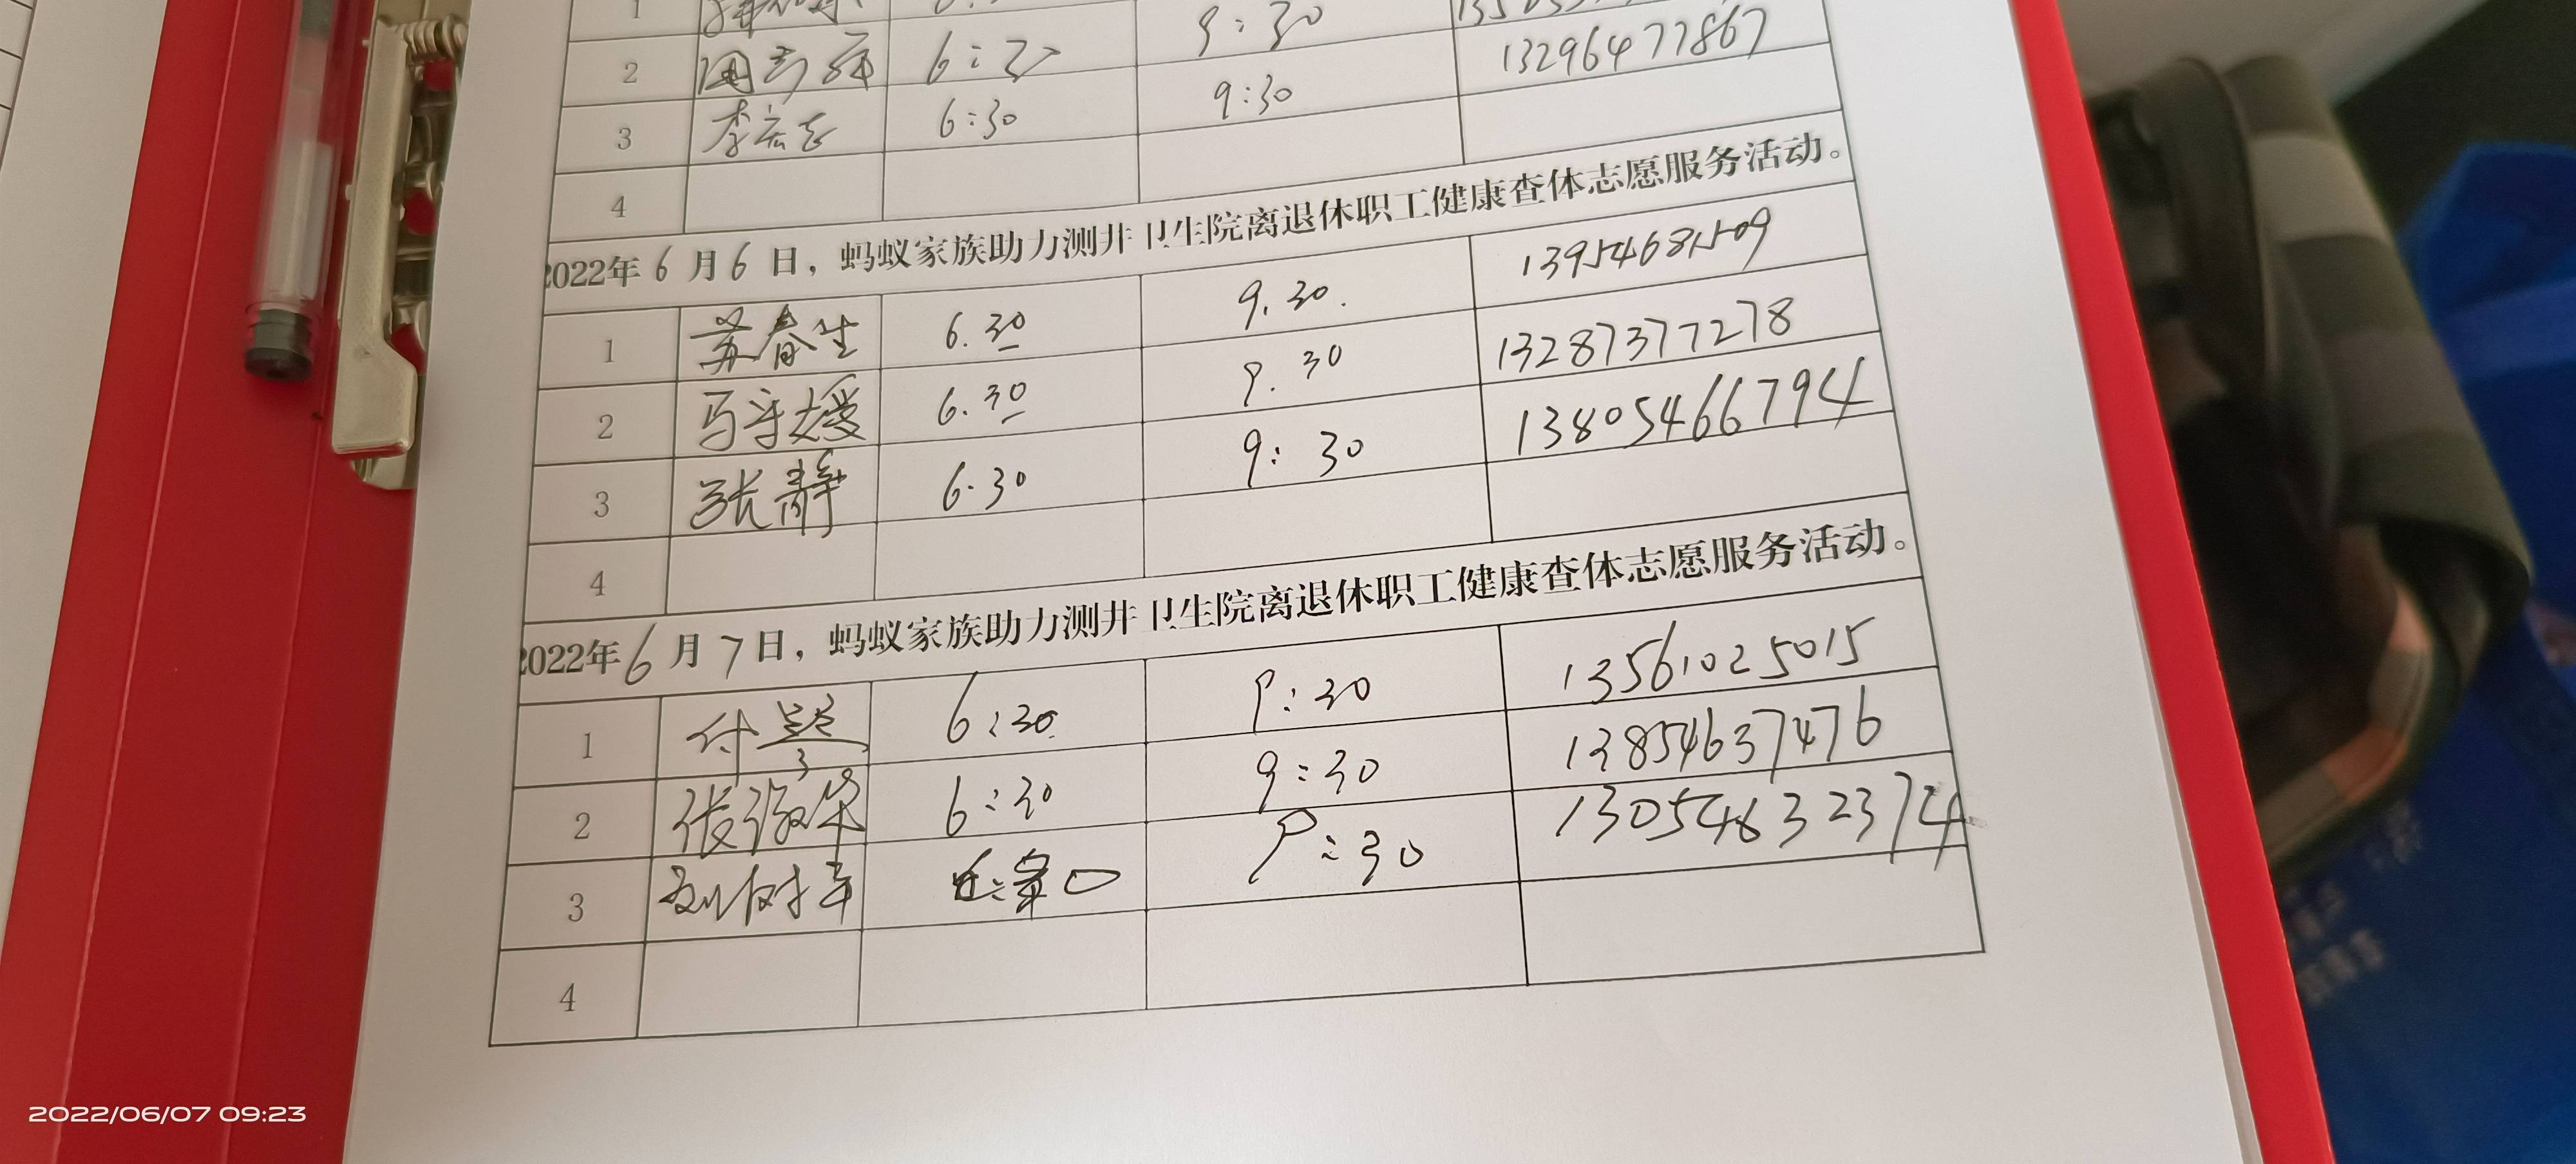 1
2 6:30 9:30 13296477867
3 李宏志 6:30 9:30
4
2022年6月6日，蚂蚁家族助力测井卫生院离退休职工健康查体志愿服务活动。
1 苏春生 6.30 9.30. 13954681509
2 马守媛 6.30 9.30 13287377278
3 张静 6.30 9:30 13805466794
4
2022年6月7日，蚂蚁家族助力测井卫生院离退休职工健康查体志愿服务活动。
1 付 6:30 9:30 13561025015
2 张 6:30 9:30 13854637476
3 刘树军 9:30 13054632374
4
2022/06/07 09:23